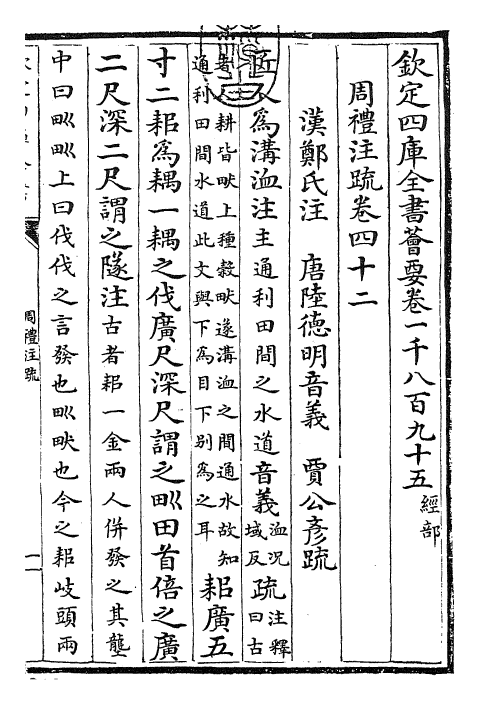 欽定四庫全書薈要卷一千八百九十五 經部
周禮注疏卷四十二
漢鄭氏注 唐陸德明音義 賈公彥疏
匠人為溝洫注主通利田間之水道音義 洫況域反 疏 注釋曰古
者人耕皆畎上種穀畎遂溝洫之間通水故知
通利田間水道此文與下為目下別為之耳
耜廣五
寸二耜為耦一耦之伐廣尺深尺謂之𤰕田首倍之廣
二尺深二尺謂之隧注古者耜一金兩人併發之其壟
中曰𤰕𤰕上曰伐伐之言發也𤰕畎也今之耜岐頭兩
周禮注疏
一